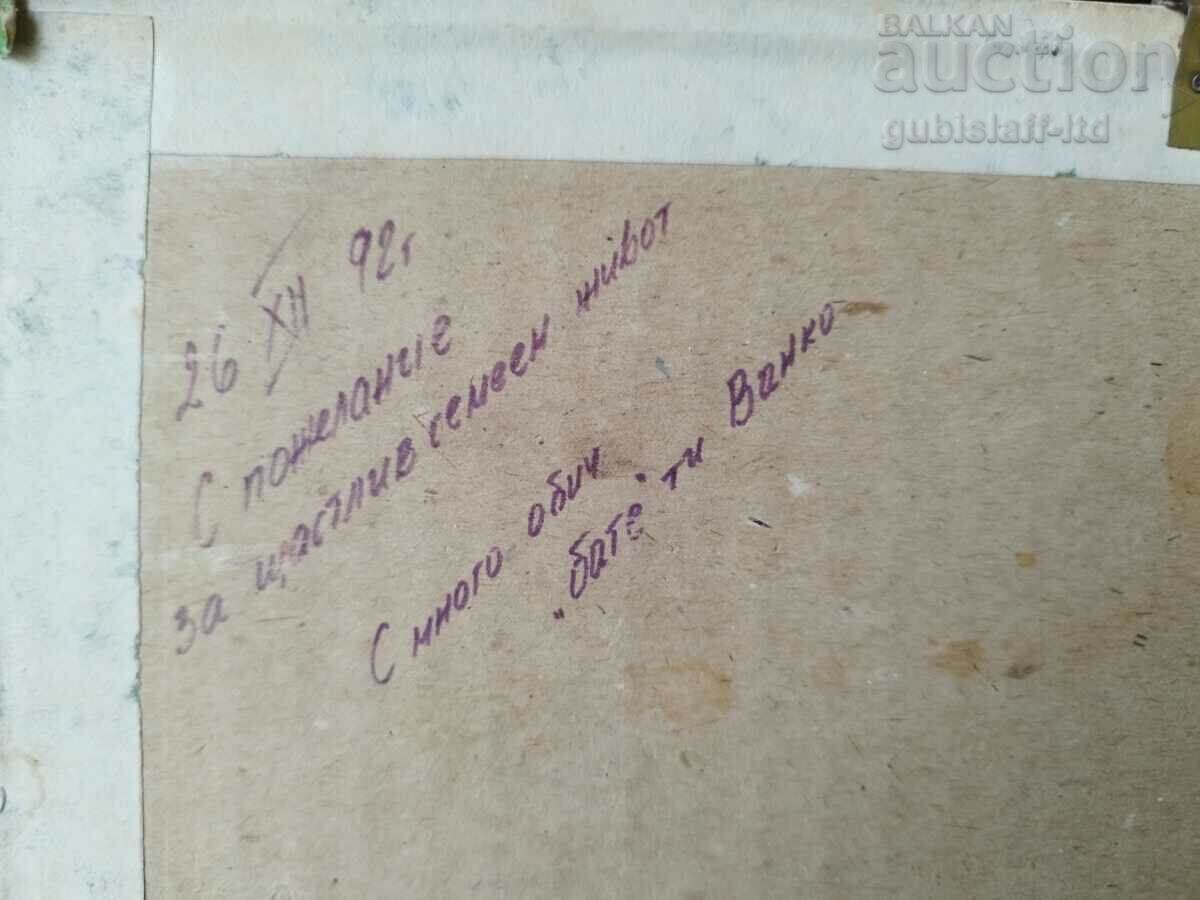 BALKAN
auction
gubislaff-ltd
26 XII 92г
С пожелание
за щастлив семеен живот
С много обич
"бате" ти Ванко